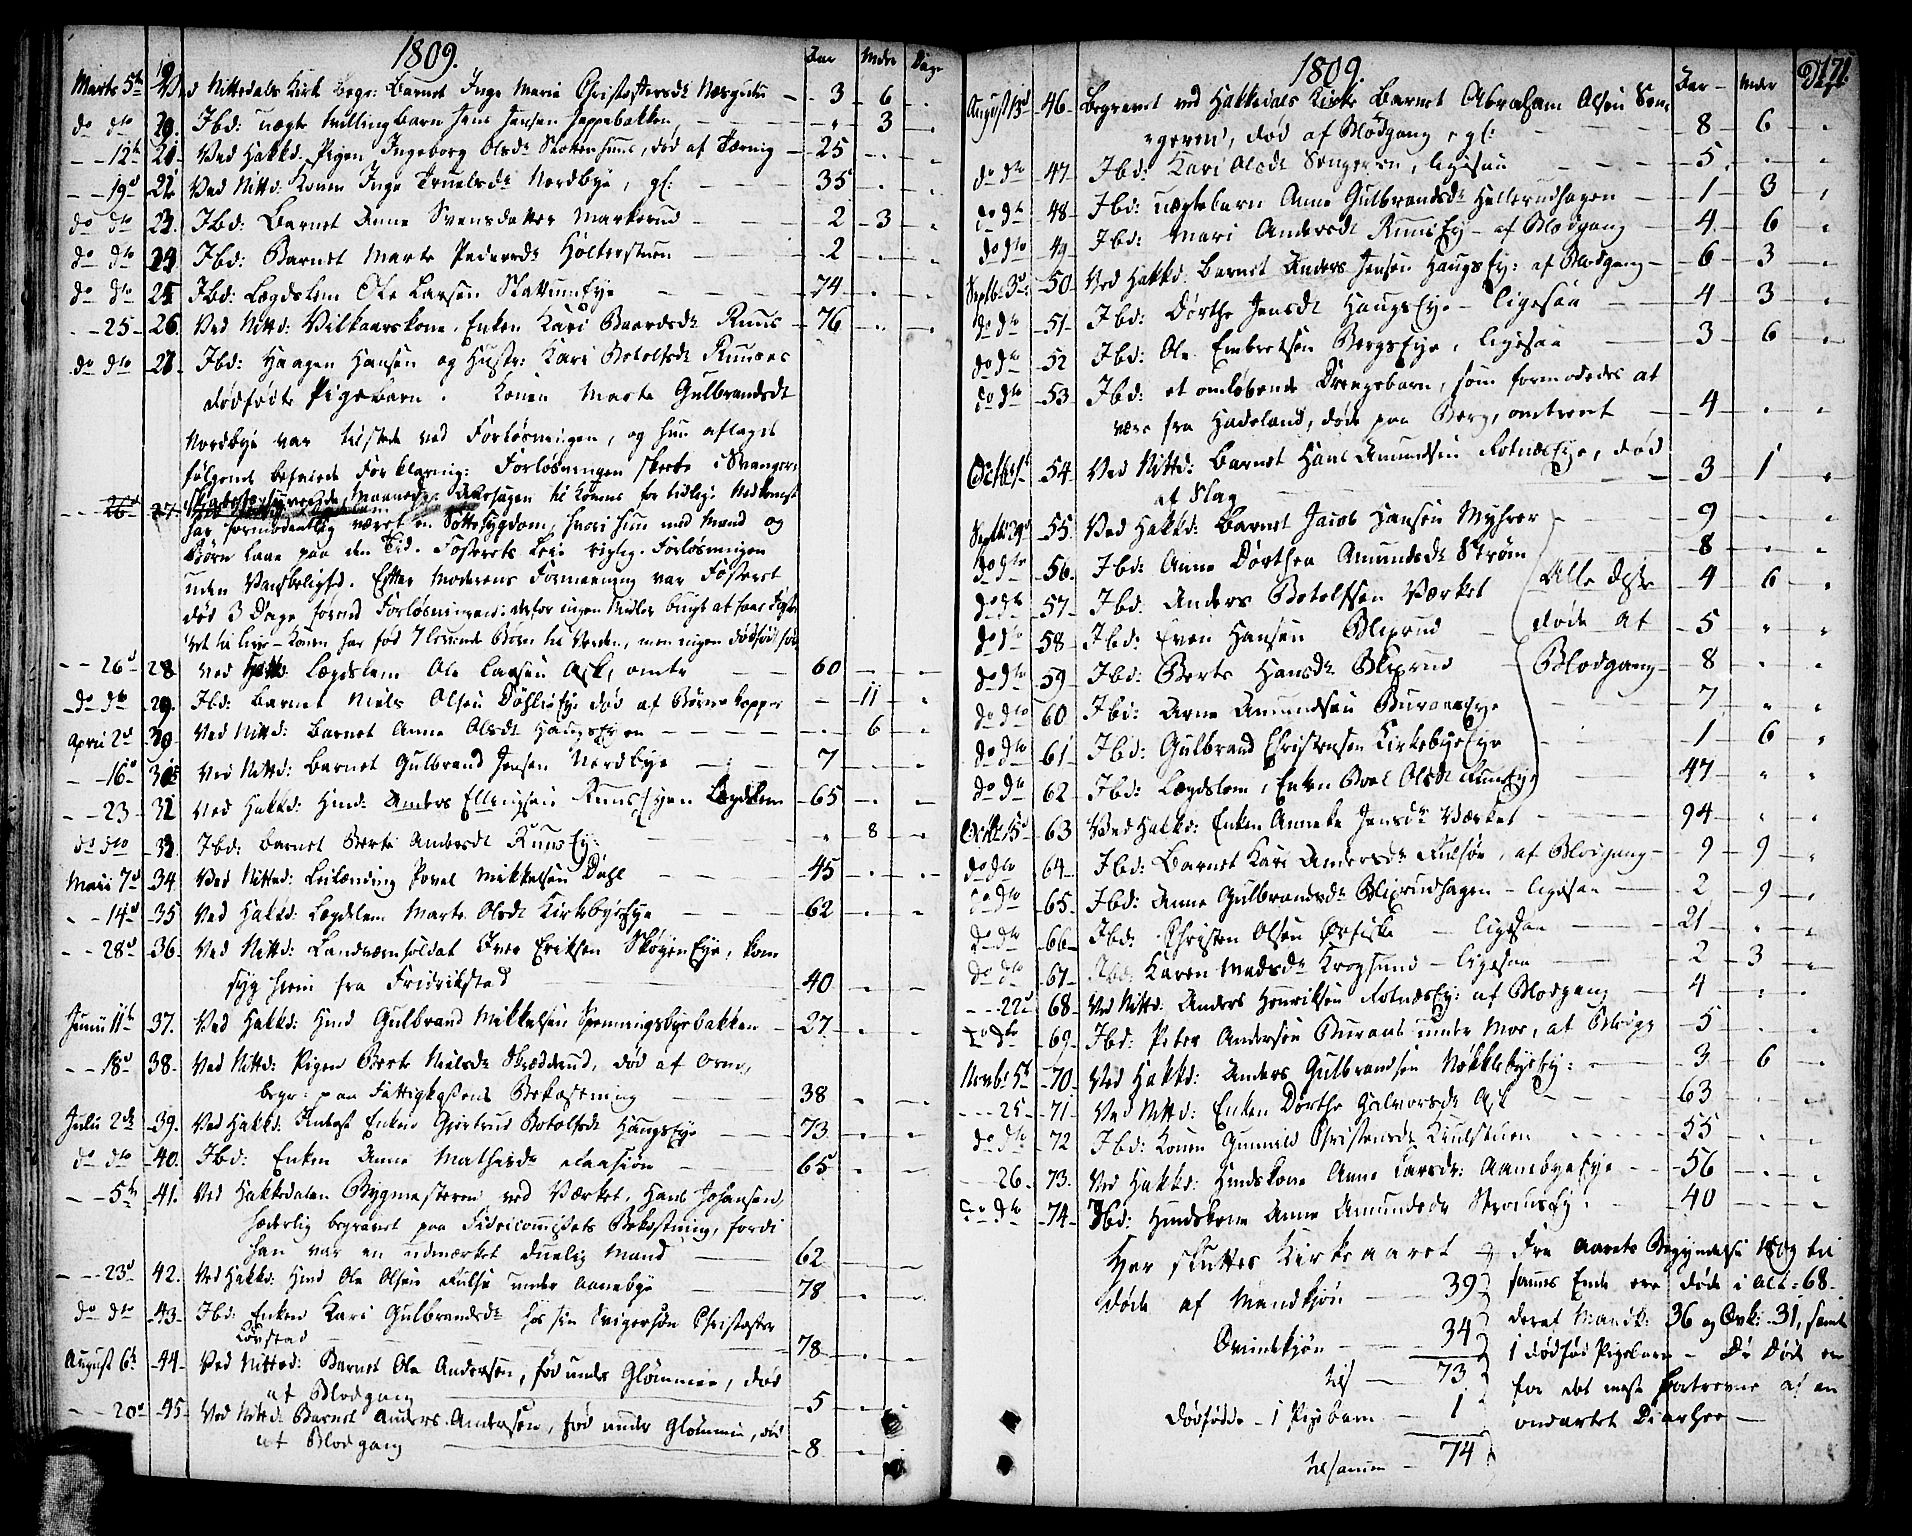 1809.
Aar Mdr Dage
Marts 5te 19. Ved Nittedals Kirk begr: Barnet Inge Maria Christophersdr Næsgutu - 3 - 6 -
do dto 20. Ibd: uægte tvillingbarn Jens Jensen Jeppebakken - " 3 -
- - 12te 21. Ved Hakkd. Pigen Ingeborg Olsdr Slottenhuus, død af Tæring - 25
- - 19d 22. Ved Nittd: Konen Inge Truelsdr Nordbye, gl: - 35
do dto 23. Ibd: Barnet Anne Svensdatter Markerud - 2 - 3
do dto 24. Ibd: Barnet Marte Pedersdr Holterstuen - 2
do dto 25. Ibd: Lægdslem Ole Larsen Slattumeye - 74
- - 25 - 26. Ved Nittd: Vilkaarskone, Enken Kari Baardsdr Ruus - 76
do dto 27. Ibd: Haagen Hansen og Hustr: Kari Botolfsdr
dødfødte Pigebarn. Konen Marte Gulbrandsdr
Nordbye var tilstede ved Forløsningen, og hun aflagde
følgende Forklaring: Forløsningen skeede i Svanger-
Aarsagen til Konens for tidlige Nedkomst
har formodentlig været en Sottesygdom, hvori hun med Mand og
Børn laae paa den Tid. Fosterets Leie rigtig. Forløsningen
uden Vanskelighd. Efter Moderens Formeening var Fosteret
død 3 Dage forend Forløsningen: derfor ingen Midler brugt at faae
til live - Konen har fød 7 levende Børn til Verden, men ingen dødfød før
- - 26d 28. Ved Hakkd. Lægdslem Ole Larsen Ask, omtr - 60
do dto 29. Ibd: Barnet Niels Olsen Døhlieeye død af Børnekopper - 11
April 2d 30. Ved Nittd: Barnet Anne Olsdr Haugseyen - 6
- - 16d 31. Ved Nittd: Barnet Gulbrand Jensen Nordbye - 7
- - 23 32. Ved Hakkd: Hmd: Anders Ellingsen Ruuseyen Lægdslem - 65
do dto 33. Ibd: Barnet Berte Andersdr Ruusey: " 8
Maii 7d 34. Ved Nitted: Leilænding Povel Mikkelsen Dahl - 45
- - 14d 35. Ved Hakkd: Lægdslem Marte Olsdr Kirkebyeeye - 62
- - 28d 36. Ved Nittd: Landværnsoldat Iver Eriksen Skøyeneye, kom
syg hiem fra Fridrikstad - 40
Junii 11te 37. Ved Hakkd: Hmd Gulbrand Mikkelsen Spenningsbyebakken - 27
- - 18d 38. Ved Nittd: Pigen Berte Nielsdr Skrædderud, død af Orm,
begr: paa Fattigkaßens Bekostning - 38
Julii 2de 39. Ved Hakkd: Inderst Enken Giertrud Botolfsdr Haugseye - 73
do dto 40. Ibd: Enken Anne Mathisdr - 65
- - 5te 41. Ved Hakkedalen Bygmesteren ved Værket, Hans Johansen,
hæderlig begravet paa Fideicommißets Bekostning, fordi
han var en udmærket duelig Mand - 62
- - 23d 42. Ved Hakkd: Hmd Ole Olsen Fulsøe under Aanebye - 78
do dto 43. Ibd: Enken Kari Gulbrandsdr hos sin Svigersøn Christopher
Løvstad - 78
August 6te 44. Ved Nitted: Barnet Ole Andersen, fød under Glommen, død
af Blodgang - 5
- - 20d 45. Ved Nittd: Barnet Anders Andersen, fød under Glommen, død
af Blodgang - 8
1809. 171.
Aar Mdr D
August 13d 46. Begravet ved Hakkedals Kirke Barnet Abraham Olsen Son-
geren, død af Blodgang gl: 8 - 6
do dto 47. Ibd: Kari Olsdr Songeren, ligesaa - 5
do dto 48. Ibd: uægtebarn Anne Gulbrandsdr Hellerudhagen - 1 - 3
do dto 49. Ibd: Mari Andersdr Ruusey - af Blodgang - 4 - 6
Septbr 3d 50. Ved Hakkd. Barnet Anders Jensen Haugsey: af Blodgang - 6 - 3
do dto 51. Ibd: Dorthe Jensdr Haugseye - ligesaa - 4 - 3
do dto 52. Ibd: Ole Embretsen Bergseye, ligesaa - 3 - 6
do dto 53. Ibd: et omløbende Drengebarn, som formodedes at
være fra Hadeland, døde paa Berg, omtrent - 4
Octbr 1d 54. Ved Nittd: Barnet Hans Amundsen Rotnæseye, død
af Slag - 3 - 1
Septbr 29d 55. Ved Hakkd: Barnet Jacob Hansen Myhrer - 9
do dto 56. Ibd: Anne Dorthea Amundsdr Strøm - 8
do dto 57. Ibd: Anders Botolfsen Værket - 4 - 6
do dto 58. Ibd: Even Hansen Blixrud - 5
do dto 59. Ibd: Berte Hansdr Blixrud - 8
Alle disse
døde af
Blodgang
do dto 60. Ibd: Arne Amundsen Buraaseye - 7
do dto 61. Ibd: Gulbrand Christensen Kirkebyeeye - 1 - 6
do dto 62. Ibd: Lægdslem, Enken Boel Olsdr Ruuseye - 47
Octbr 15d 63. Ved Hakkd: Enken Anneke Jensdr Værket - 94
do dto 64. Ibd: Barnet Kari Andersdr Fulsøe, af Blodgang - 9 - 9
do dto 65. Ibd: Anne Gulbrandsdr Blixrudhagen - ligesaa - 2 - 9
do dto 66. Ibd: Christen Olsen Ørfiske - ligesaa - 21
do dto 67. Ibd: Karen Madsdr Krogsund - ligesaa - 2 - 3
- - 22d 68. Ved Nittd: Anders Henriksen Rotnæsey: af Blodgang - 4
do dto 69. Ibd: Peter Andersen Buraas under Moe, af Blodgg - 5
Novbr 5te 70. Ved Hakkd: Anders Gulbrandsen Nøkklebyeey: - 3 - 6
- - 25 - 71. Ved Nittd: Enken Dorthe Halvorsdr Ask - 63
do dto 72. Ibd: Konen Gunnild Christensdr Kiulstuen - 55
- - 26. 73. Ved Hakkd: Hmdskone Anne Larsdr: Aanebyeeye - 56
do dto 74. Ibd: Hmdskone Anne Amundsdr Strømsey: - 40
Her sluttes Kirkeaaret
døde af Mandkjøn - 39
Qvindekjøn - 34
til - 73
dødfødde - 1 Pigebarn - 1
tilsamen - 74
Fra Aarets Begyndelse 1809 til
samme Ende ere døde i Alt: 68.
deraf Mandk: 36 og Qvk: 31, samt
1 dødfød Pigebarn - De Døde ere
for det meste bortrevne af en
ondartet Diarhoe -